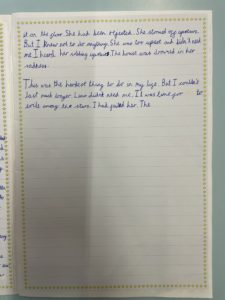 it on the floor. She had been rejected. She stormed off upstairs.
But I knew not to do anything. She was too upset and didn't need
me. I heard her sobbing upstairs. The house was drowned in her
sadness.
This was the hardest thing to do in my life. But I couldn't
last much longer. Luna didn't need me. It was time for to
smile among the stars. I had failed her. The